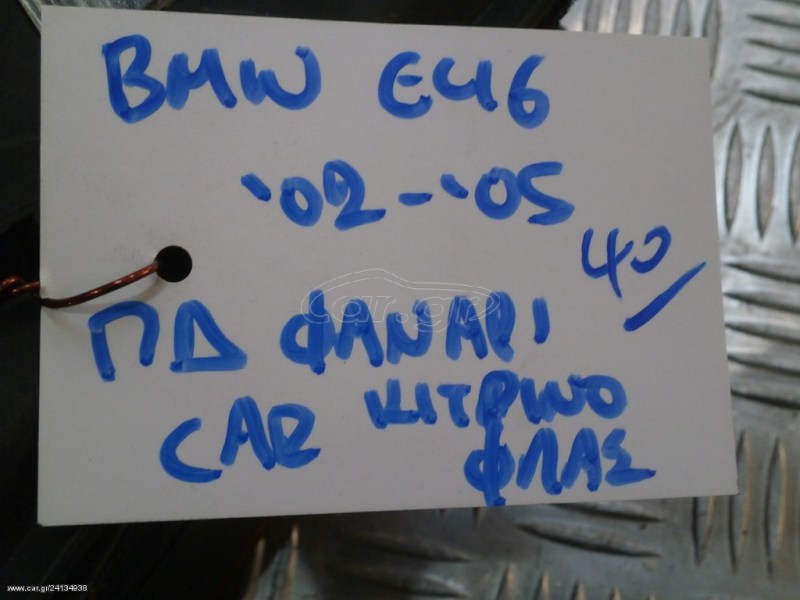 BMW E46
'02-'05
40/
ΠΔ ΦΑΝΑΡΙ
CAR ΚΙΤΡΙΝΟ
ΦΛΑΣ
car.gr
www.car.gr/24134938